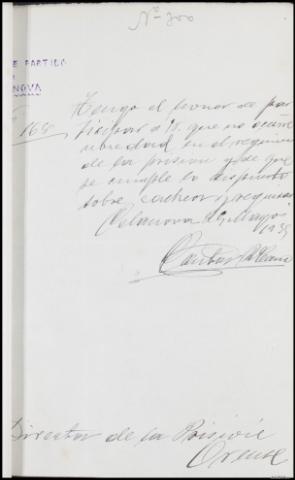 Nº 200
E PARTIDO
NOVA
168
Tengo el honor de par
ticipar a V. que no ocurre
novedad en el regimen
de la prision y de que
se cumple lo dispuesto
sobre cacheos y requisas
Celanova Mayo
1939
Director de la Prision
Orense